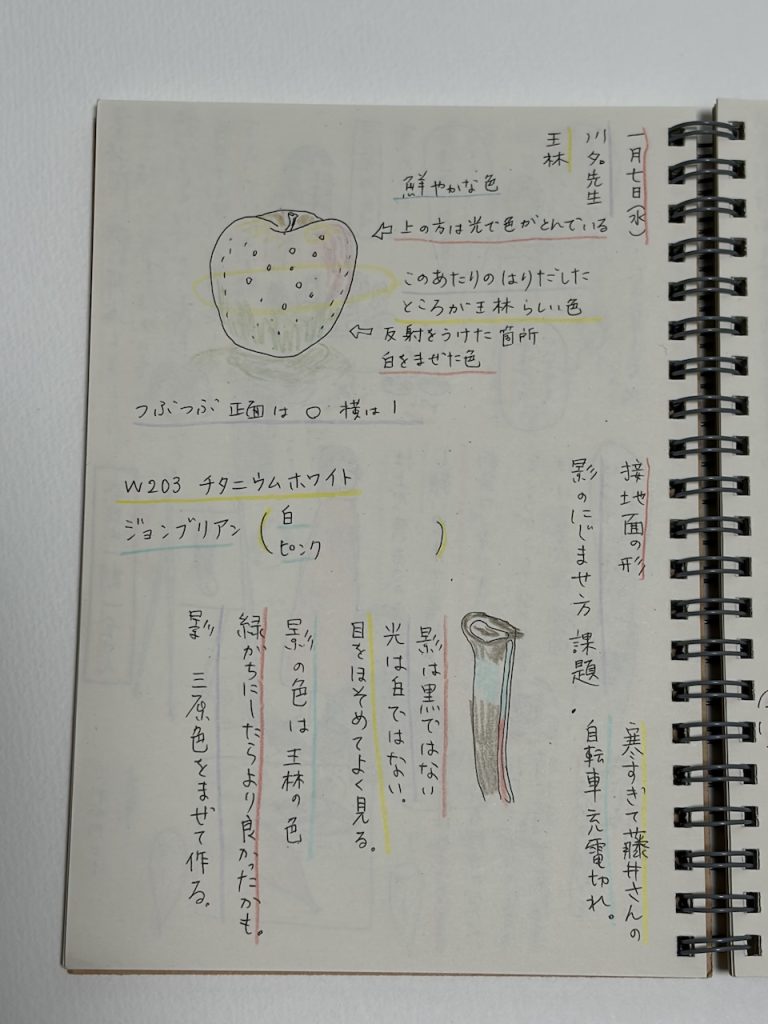 一月七日(水)
川夕。先生
王林
鮮やかな色
⇦上の方は光で色がとんでいる
このあたりのはりだした
ところが王林らしい色
⇦反射をうけた箇所
白をまぜた色
つぶつぶ 正面は ○ 横は |
W203 チタニウムホワイト
ジョンブリアン(白
ピンク)
接地面の形
影のにじませ方 課題.
寒すぎて藤井さんの
自転車充電切れ。
影は黒ではない
光は白ではない。
目をほそめてよく見る。
影の色は王林の色
緑がちにしたらより良かったかも。
影 三原色をまぜて作る。